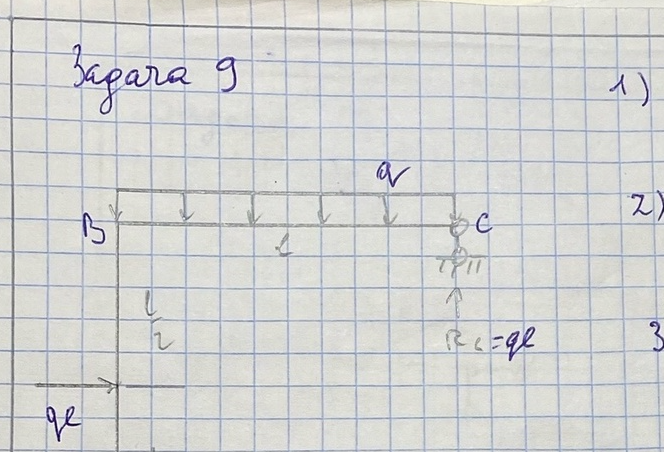 Задача 9
1)
q
B
C
2)
l
l/2
Rc=ql
3
ql